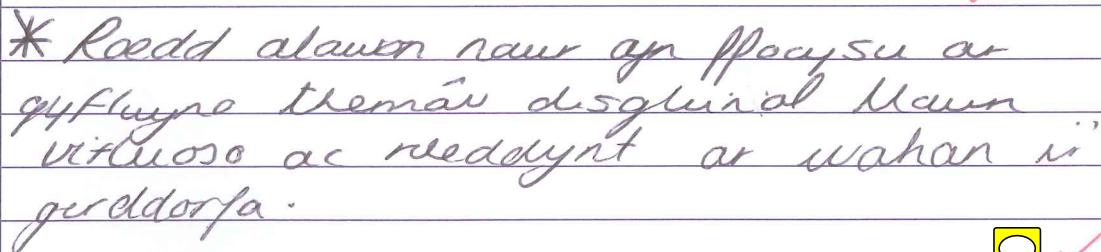 * Roedd alawon nawr yn ffocysu ar
gyflwyno themâu disgleirial llawn
virtuoso ac roeddynt ar wahan i'r
gerddorfa.